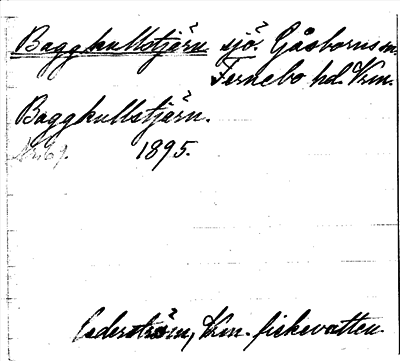 Baggkullstjärn sjö. Gåsborns sn.
Fernebo hd. Vrm.
Baggkullstjärn.
1895.
Cederström, Vrm. fiskevatten